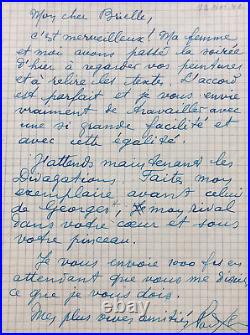 Mon cher Brielle,
c'est merveilleux ! Ma femme
et moi avons passé la soirée
d'hier à regarder vos peintures
et à relire les textes. L'accord
est parfait et je vous envie
vraiment de travailler avec
une si grande facilité et
avec cette égalité.
J'attends maintenant les
Divagations. Faites mon
exemplaire avant celui
de Georges, mon rival
dans votre cœur et sous
votre pinceau.
Je vous envoie 1000 frs en
attendant que vous me disiez
ce que je vous dois.
Mes plus vives amitiés